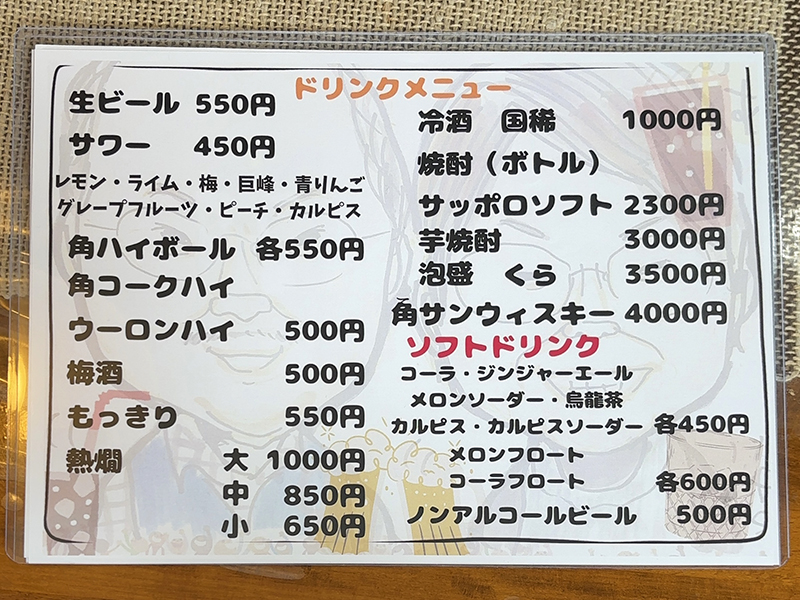 ドリンクメニュー
生ビール 550円
サワー 450円
レモン・ライム・梅・巨峰・青りんご
グレープフルーツ・ピーチ・カルピス
角ハイボール 各550円
角コークハイ
ウーロンハイ 500円
梅酒 500円
もっきり 550円
熱燗 大 1000円
中 850円
小 650円
冷酒 国稀 1000円
焼酎（ボトル）
サッポロソフト 2300円
芋焼酎 3000円
泡盛 くら 3500円
角サンウィスキー 4000円
ソフトドリンク
コーラ・ジンジャーエール
メロンソーダー・烏龍茶
カルピス・カルピスソーダー 各450円
メロンフロート
コーラフロート 各600円
ノンアルコールビール 500円